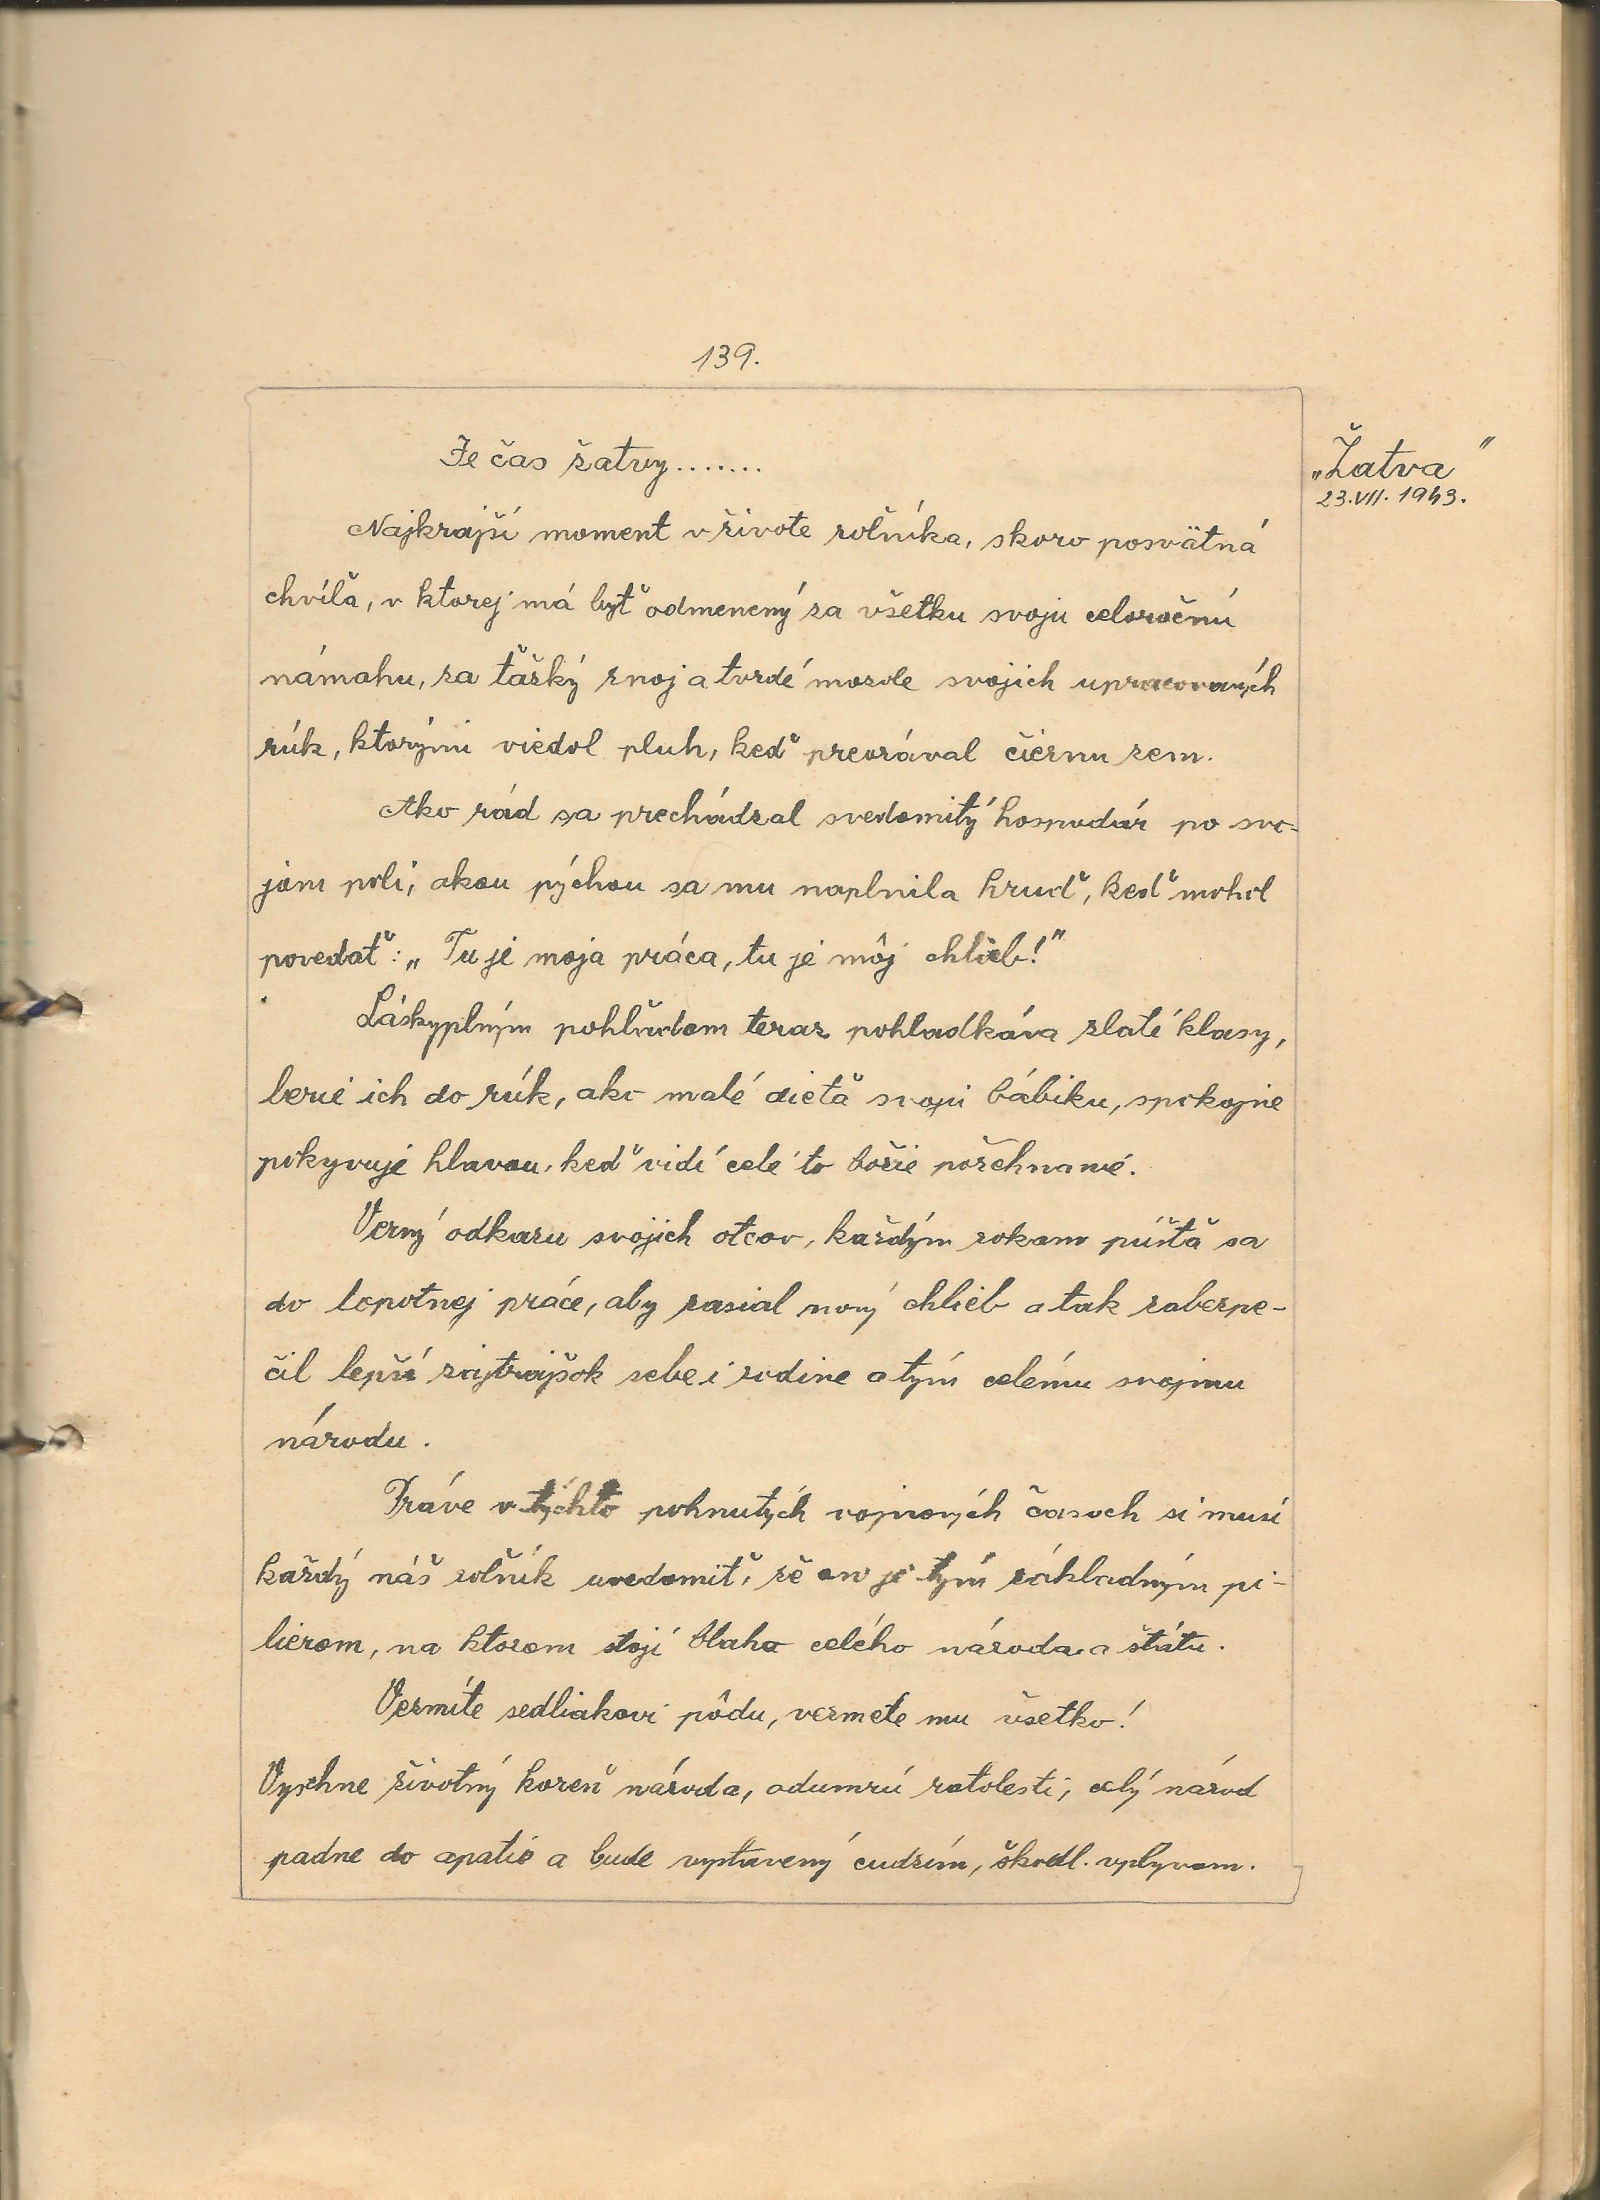 139.
Je čas žatvy.......
„Žatva"
23.VII. 1943.
Najkrajší moment v živote roľníka, skoro posvätná
chvíľa, v ktorej má byť odmenený za všetku svoju celoročnú
námahu, za ťažký znoj a tvrdé mozole svojich upracovaných
rúk, ktorými viedol pluh, keď preorával čiernu zem.
Ako rád sa prechádzal svedomitý hospodár po svo-
jom poli, akou pýchou sa mu naplnila hruď, keď mohol
povedať: „Tu je moja práca, tu je môj chlieb!"
Láskyplným pohľadom teraz pohladkáva zlaté klasy,
berie ich do rúk, ako malé dieťa svoju bábiku, spokojne
pokyvuje hlavou, keď vidí celé to božie požehnanie.
Verný odkazu svojich otcov, každým rokom púšťa sa
do lopotnej práce, aby zasial nový chlieb a tak zabezpe-
čil lepší zajtrajšok sebe i rodine a tým celému svojmu
národu.
Práve v týchto pohnutých vojnových časoch si musí
každý náš roľník uvedomiť, že on je tým základným pi-
lierom, na ktorom stojí blaho celého národa a štátu.
Vezmite sedliakovi pôdu, vezmete mu všetko!
Vyschne životný koreň národa, odumrú ratolesti, celý národ
padne do apatie a bude vystavený cudzím, škodl. vplyvom.